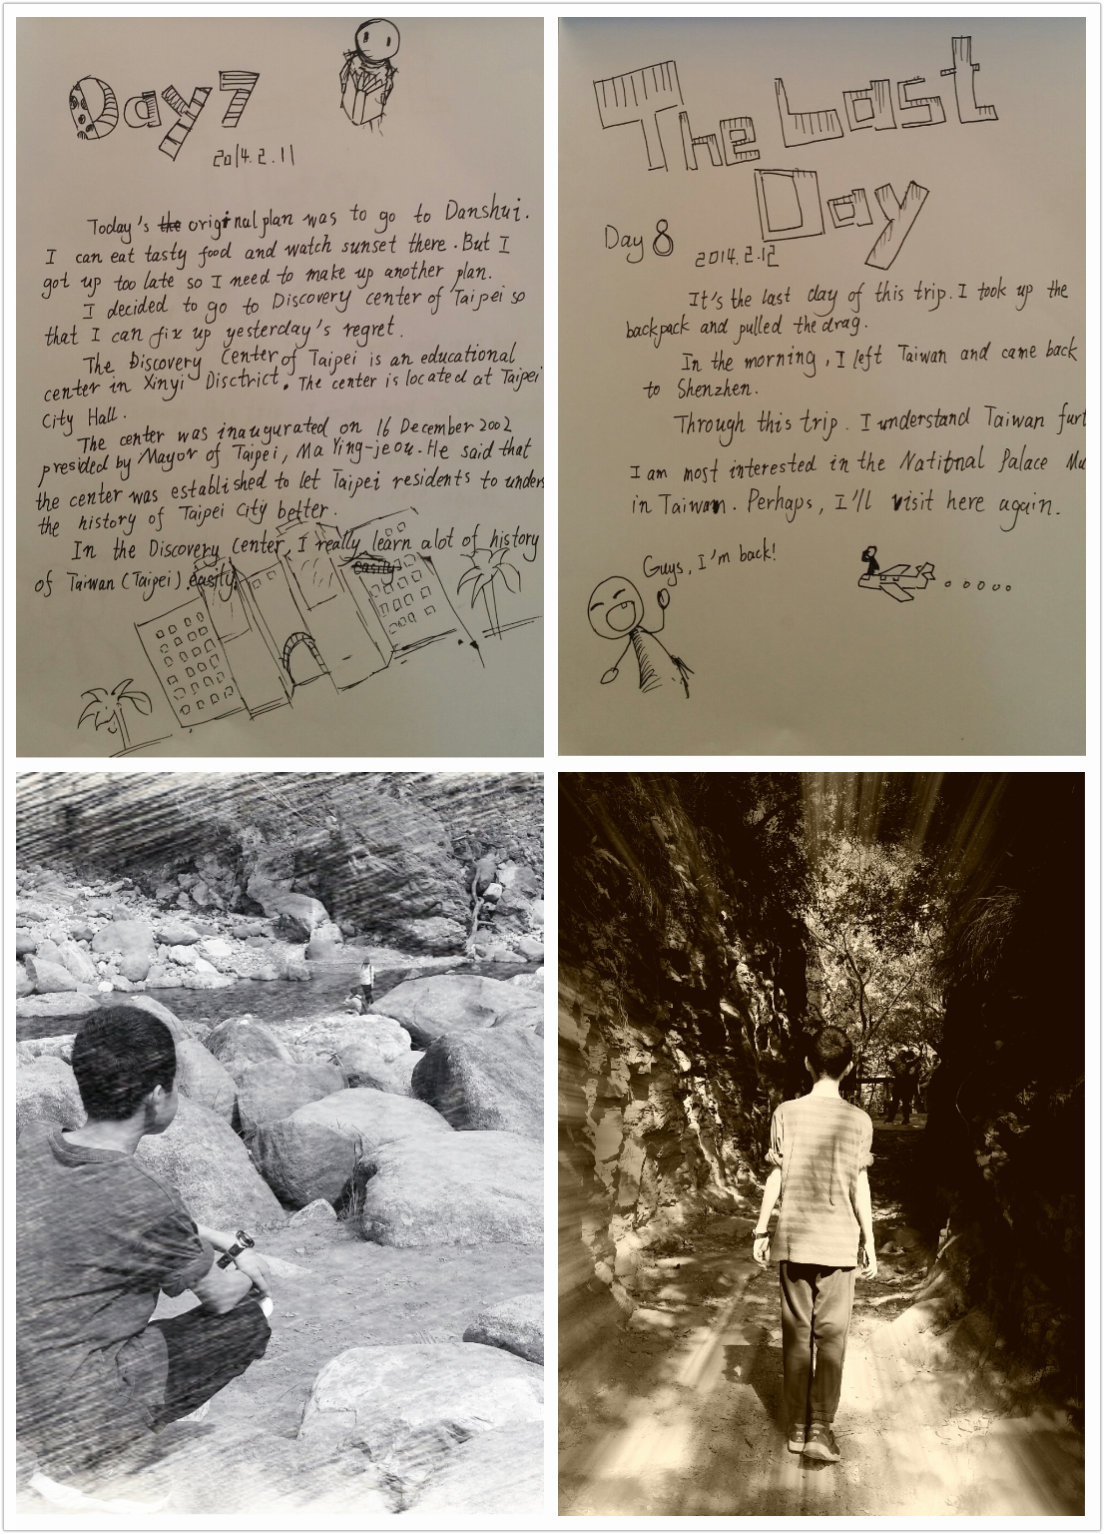 Day 7
2014.2.11
Today's the original plan was to go to Danshui.
I can eat tasty food and watch sunset there. But I
got up too late so I need to make up another plan.
I decided to go to Discovery center of Taipei so
that I can fix up yesterday's regret.
The Discovery Center of Taipei is an educational
center in Xinyi Disctrict. The center is located at Taipei
City Hall.
The center was inaugurated on 16 December 2002
presided by Mayor of Taipei, Ma Ying-jeou. He said that
the center was established to let Taipei residents to unders
the history of Taipei City better.
In the Discovery Center, I really learn alot of history
easily
of Taiwan (Taipei). easily.
The Last
Day
Day 8
2014.2.12
It's the last day of this trip. I took up the
backpack and pulled the drag.
In the morning, I left Taiwan and came back
to Shenzhen.
Through this trip. I understand Taiwan furt
I am most interested in the National Palace Mu
in Taiwan. Perhaps, I'll visit here again.
Guys, I'm back!